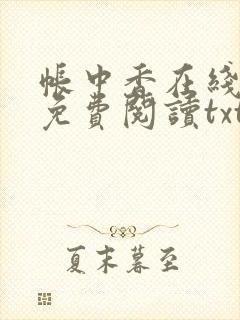 帳中香在綫
免費閱讀txt
夏末暮至